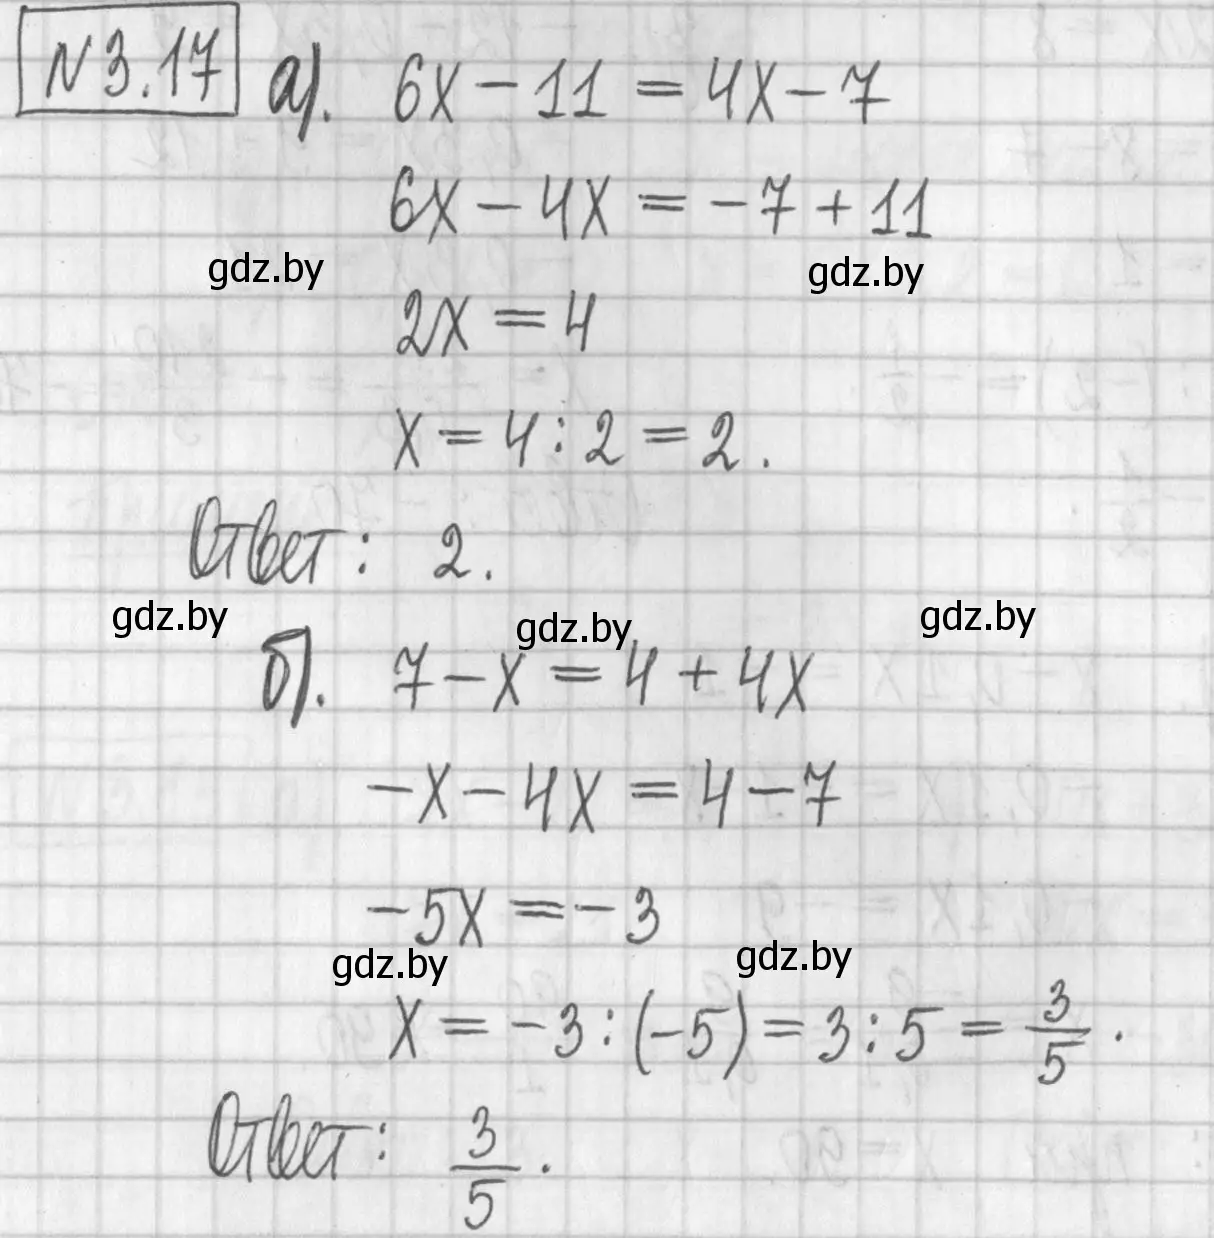 N 3.17 а). 6x - 11 = 4x - 7
6x - 4x = -7 + 11
gdz.by gdz.by
2x = 4
x = 4 : 2 = 2.
Ответ: 2.
gdz.by gdz.by gdz.by
б). 7 - x = 4 + 4x
-x - 4x = 4 - 7
-5x = -3
gdz.by gdz.by
x = -3 : (-5) = 3 : 5 = 3/5.
Ответ: 3/5.